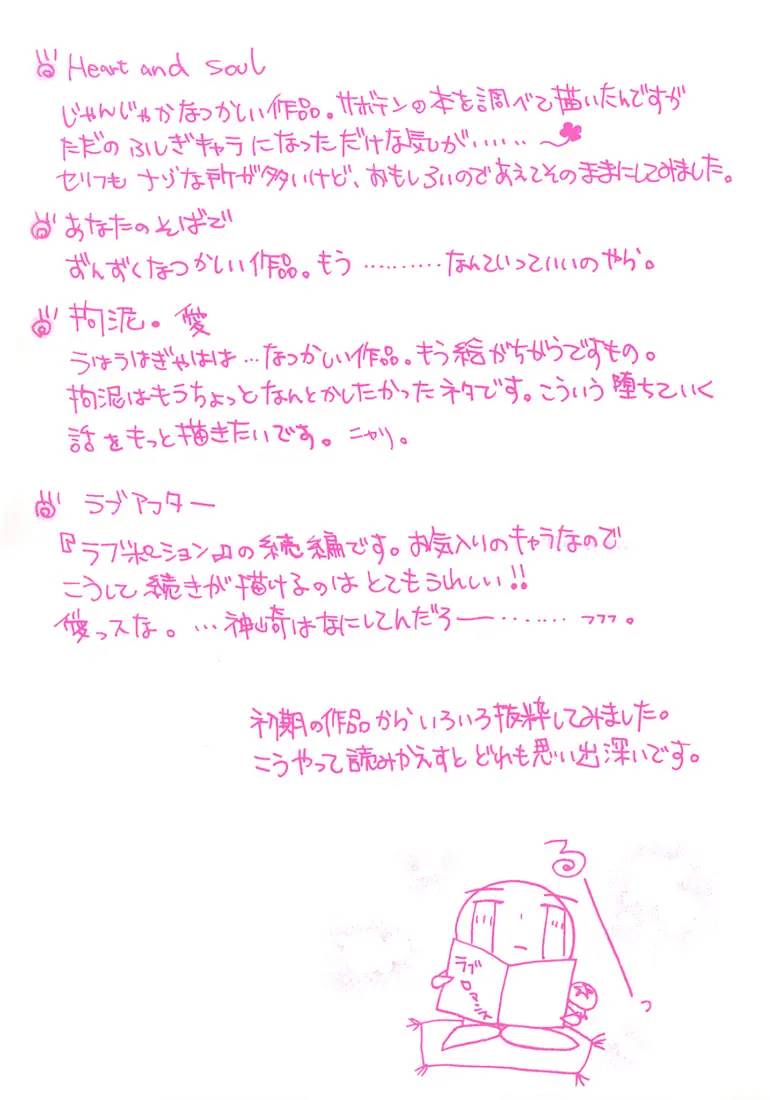 Heart and Soul
じゃんじゃかなつかしい作品。サボテンの本を調べて描いたんですが
ただのふしぎキャラになっただけな気が‥‥‥
セリフもナゾな所が多いけど、おもしろいのであえてそのままにしてみました。
あなたのそばで
ずんずくなつかしい作品。もう…………なんていっていいのやら。
拘泥。愛
うほうはぎゃはは…なつかしい作品。もう絵がちがうですもの。
拘泥はもうちょっとなんとかしたかったネタです。こういう堕ちていく
話をもっと描きたいです。ニヤリ。
ラブアフター
『ラブポーション』の続編です。お気入りのキャラなので
こうして続きが描けるのはとてもうれしい!!
愛っスな。…神崎はなにしてんだろー‥‥‥‥フフフ。
初期の作品からいろいろ抜粋してみました。
こうやって読みかえすとどれも思い出深いです。
る
っ
ラブ